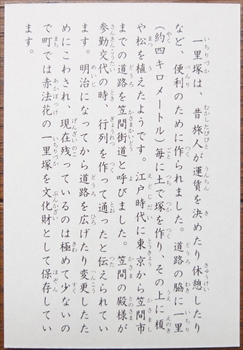 一里塚は、昔旅人が運賃を決めたり休憩したり
など、便利のために作られました。道路の脇に一里
(約四キロメートル)毎に土で塚を作り、その上に榎
や松を植えたようです。江戸時代に東京から笠間市
までの道路を笠間街道と呼びました。笠間の殿様が
参勤交代の時、行列を作って通ったと伝えられてい
ます。明治になってから道路を広げたり変更したた
めにこわされ、現在残っているのは極めて少ないの
で町では赤法花の一里塚を文化財として保存してい
ます。